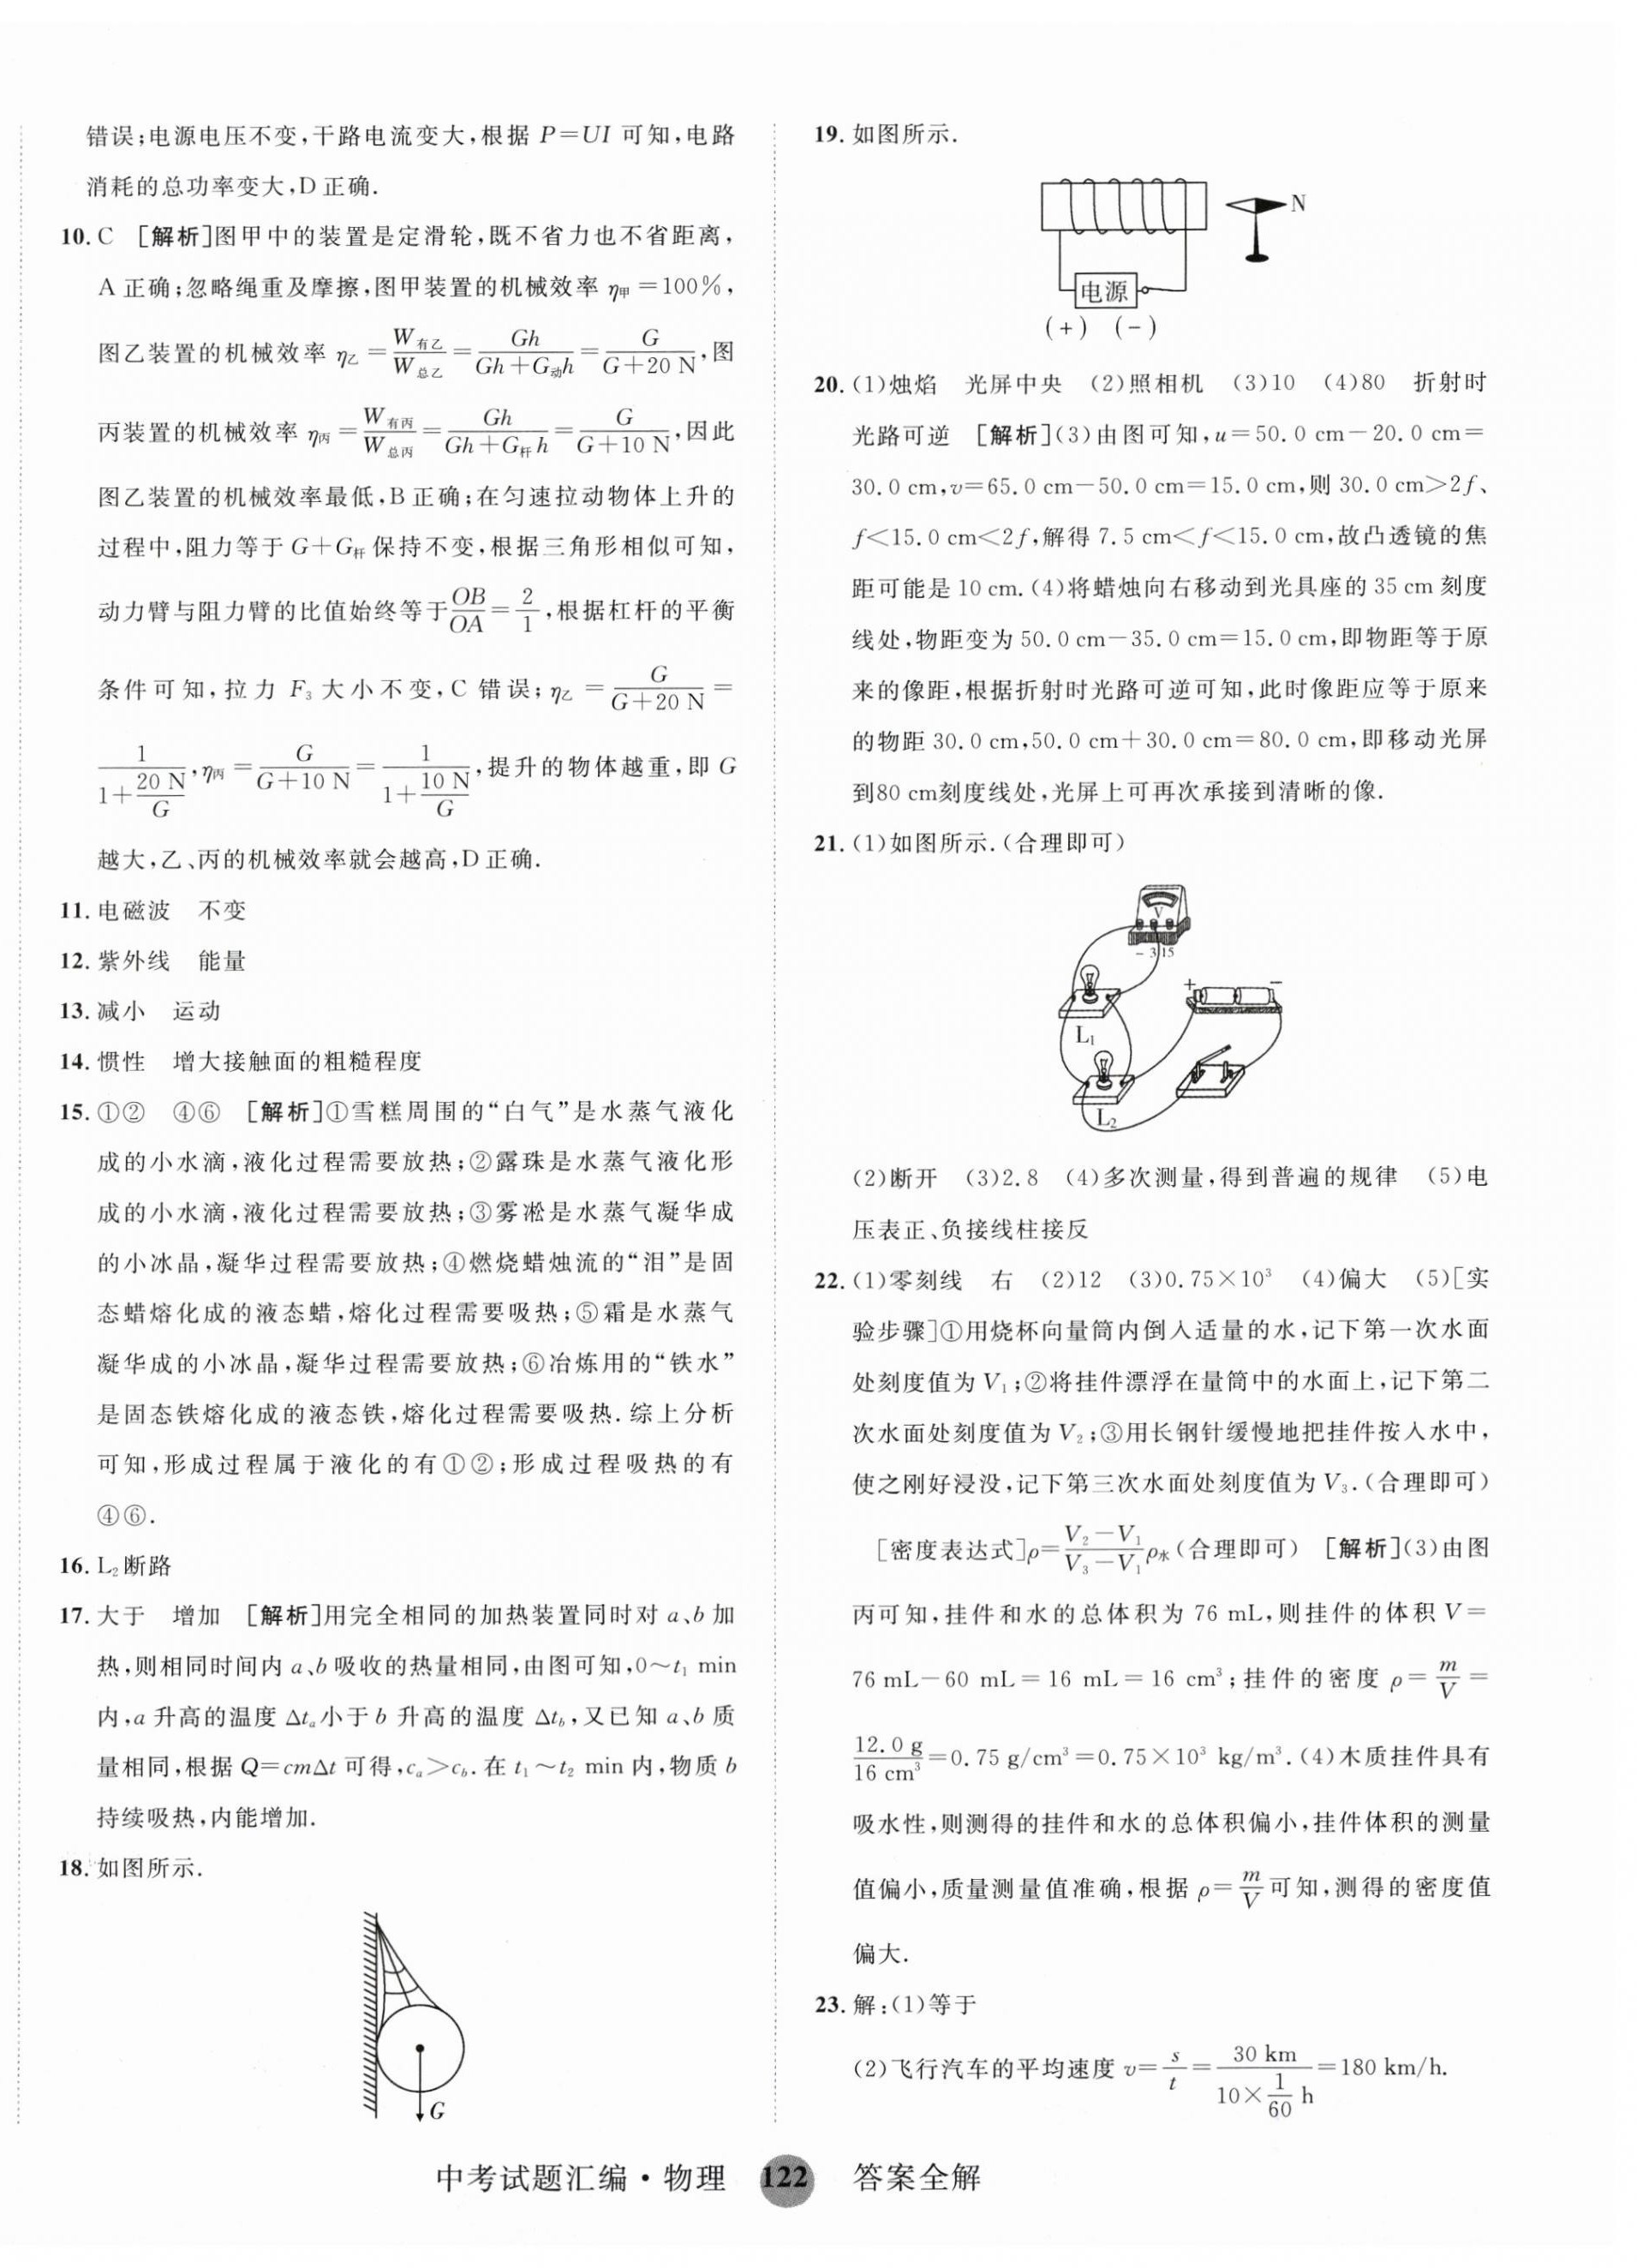 错误;电源电压不变,干路电流变大,根据 P=UI 可知,电路
消耗的总功率变大,D 正确.
10. C [解析]图甲中的装置是定滑轮,既不省力也不省距离,
A 正确;忽略绳重及摩擦,图甲装置的机械效率 η甲 =100%,
图乙装置的机械效率 η乙 = W有乙/W总乙 = Gh/(Gh+G动h) = G/(G+20 N),图
丙装置的机械效率 η丙 = W有丙/W总丙 = Gh/(Gh+G杆h) = G/(G+10 N),因此
图乙装置的机械效率最低,B 正确;在匀速拉动物体上升的
过程中,阻力等于 G+G杆 保持不变,根据三角形相似可知,
动力臂与阻力臂的比值始终等于 OB/OA = 2/1,根据杠杆的平衡
条件可知,拉力 F₃ 大小不变,C 错误; η乙 = G/(G+20 N) =
1/(1+20 N/G), η丙 = G/(G+10 N) = 1/(1+10 N/G),提升的物体越重,即 G
越大,乙、丙的机械效率就会越高,D 正确.
11. 电磁波 不变
12. 紫外线 能量
13. 减小 运动
14. 惯性 增大接触面的粗糙程度
15. ①② ④⑥ [解析]①雪糕周围的“白气”是水蒸气液化
成的小水滴,液化过程需要放热;②露珠是水蒸气液化形
成的小水滴,液化过程需要放热;③雾凇是水蒸气凝华成
的小冰晶,凝华过程需要放热;④燃烧蜡烛流的“泪”是固
态蜡熔化成的液态蜡,熔化过程需要吸热;⑤霜是水蒸气
凝华成的小冰晶,凝华过程需要放热;⑥冶炼用的“铁水”
是固态铁熔化成的液态铁,熔化过程需要吸热.综上分析
可知,形成过程属于液化的有①②;形成过程吸热的有
④⑥.
16. L₂ 断路
17. 大于 增加 [解析]用完全相同的加热装置同时对 a、b 加
热,则相同时间内 a、b 吸收的热量相同,由图可知,0～t₁ min
内,a 升高的温度 Δtₐ 小于 b 升高的温度 Δt_b,又已知 a、b 质
量相同,根据 Q=cmΔt 可得,cₐ>c_b.在 t₁～t₂ min 内,物质 b
持续吸热,内能增加.
18. 如图所示.
G
19. 如图所示.
N
电源
(+) (-)
20. (1)烛焰 光屏中央 (2)照相机 (3)10 (4)80 折射时
光路可逆 [解析](3)由图可知,u=50.0 cm-20.0 cm=
30.0 cm,v=65.0 cm-50.0 cm=15.0 cm,则 30.0 cm>2f、
f<15.0 cm<2f,解得 7.5 cm<f<15.0 cm,故凸透镜的焦
距可能是 10 cm.(4)将蜡烛向右移动到光具座的 35 cm 刻度
线处,物距变为 50.0 cm-35.0 cm=15.0 cm,即物距等于原
来的像距,根据折射时光路可逆可知,此时像距应等于原来
的物距 30.0 cm,50.0 cm+30.0 cm=80.0 cm,即移动光屏
到80 cm刻度线处,光屏上可再次承接到清晰的像.
21. (1)如图所示.(合理即可)
V
- 3 15
+ -
L₁
L₂
(2)断开 (3)2.8 (4)多次测量,得到普遍的规律 (5)电
压表正、负接线柱接反
22. (1)零刻线 右 (2)12 (3)0.75×10³ (4)偏大 (5)[实
验步骤]①用烧杯向量筒内倒入适量的水,记下第一次水面
处刻度值为 V₁;②将挂件漂浮在量筒中的水面上,记下第二
次水面处刻度值为 V₂;③用长钢针缓慢地把挂件按入水中,
使之刚好浸没,记下第三次水面处刻度值为 V₃.(合理即可)
[密度表达式]ρ=(V₂-V₁)/(V₃-V₁)ρ水(合理即可) [解析](3)由图
丙可知,挂件和水的总体积为 76 mL,则挂件的体积 V=
76 mL-60 mL=16 mL=16 cm³;挂件的密度 ρ=m/V=
12.0 g/16 cm³=0.75 g/cm³=0.75×10³ kg/m³.(4)木质挂件具有
吸水性,则测得的挂件和水的总体积偏小,挂件体积的测量
值偏小,质量测量值准确,根据 ρ=m/V 可知,测得的密度值
偏大.
23. 解:(1)等于
(2)飞行汽车的平均速度 v=s/t=30 km/(10×1/60 h)=180 km/h.
中考试题汇编·物理 122 答案全解